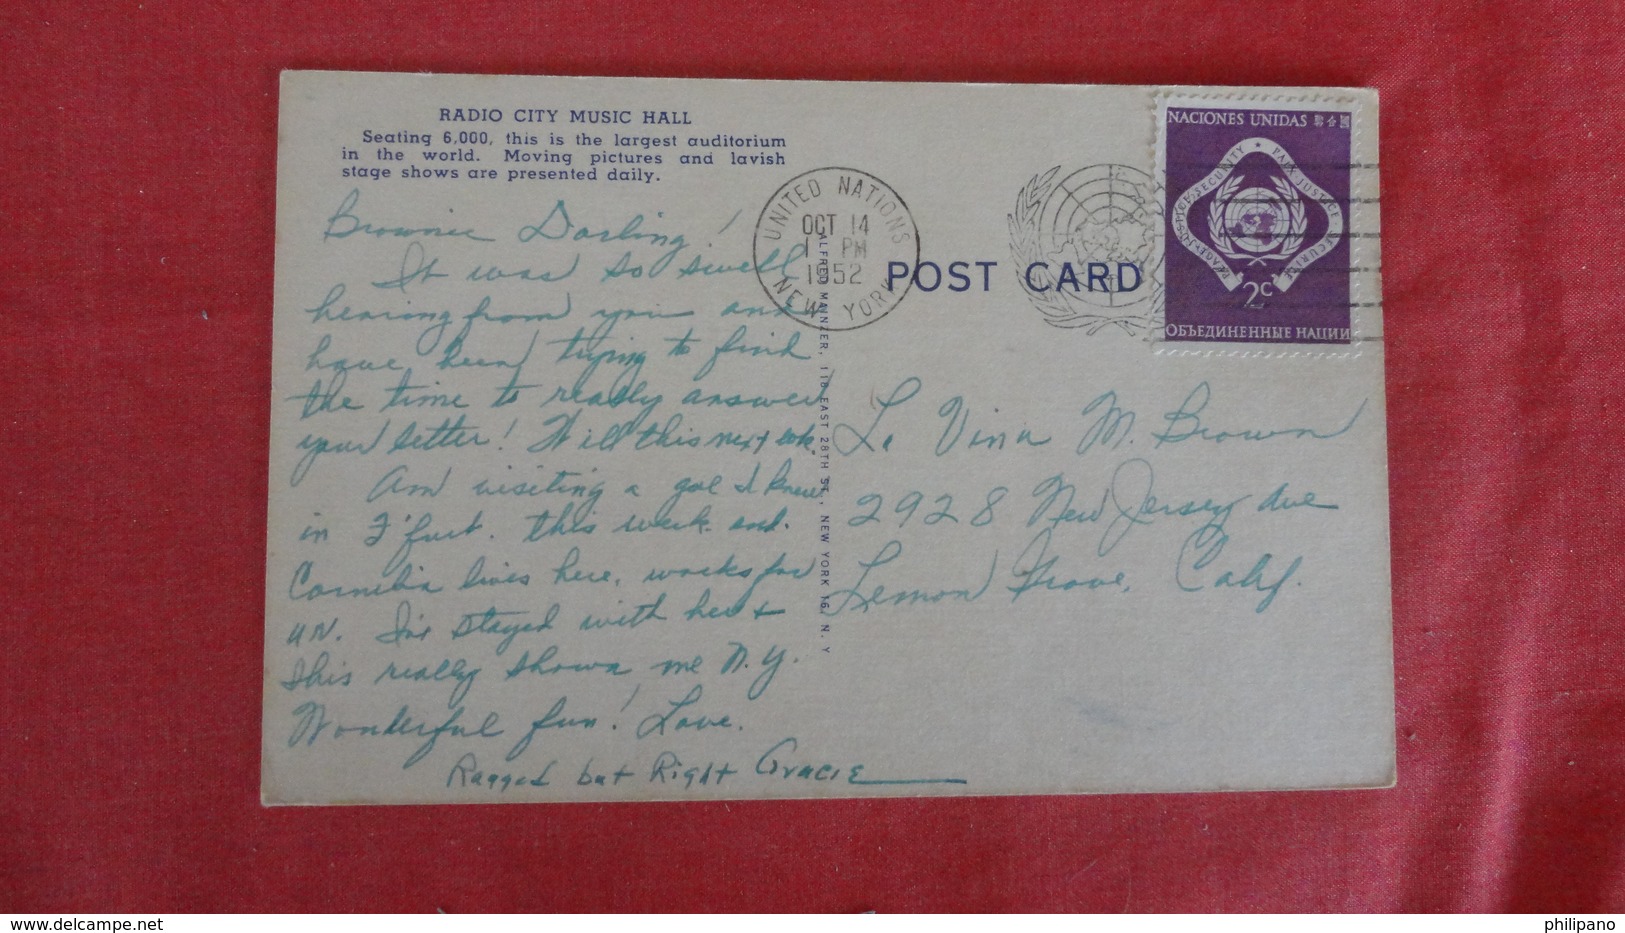 RADIO CITY MUSIC HALL
Seating 6,000, this is the largest auditorium
in the world. Moving pictures and lavish
stage shows are presented daily.
Brownie Darling!
It was so swell
hearing from you and
have been trying to find
the time to really answer
your letter! Will this next wk.
Am visiting a gal I knew
in F'furt. this week end.
Cornelia lives here, works for
UN. I've stayed with her &
this really shown me N.Y.
Wonderful fun! Love.
Ragged but Right Gracie
UNITED NATIONS
OCT 14
1 PM
1952
NEW YORK
POST CARD
ALFRED MAINZER, 118 EAST 28TH ST., NEW YORK 16, N. Y
NACIONES UNIDAS
PEACE JUSTICE SECURITY ★ PAIX JUSTICE SECURITE
2c
ОБЪЕДИНЕННЫЕ НАЦИИ
La Vina M. Brown
2928 New Jersey Ave
Lemon Grove, Calif.
delcampe.net
philipano